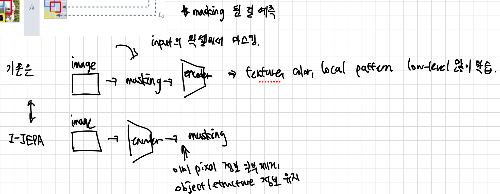 masking 된 걸 예측
input의 픽셀에서 마스킹.
기존은
image
→ masking → encoder → texture, color, local pattern low-level 많이 학습.
I-JEPA
image
→ encoder → masking
이미 pixel 정보 일부 제거,
object/structure 정보 유지